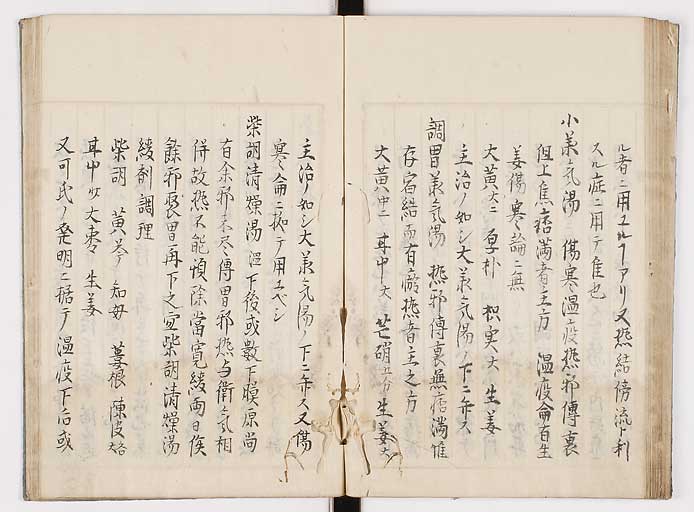 ル者ニ用ユルヿアリ又熱結傍流下利
スル症ニ用テ佳也
小承気湯 傷寒温疫熱邪傳裏
但上焦痞満者主方 温疫侖有生
姜傷寒論ニ無
大黄大 厚朴 枳実大 生姜
主治ノ如シ大承気湯ノ下ニ弁ス
調胃承気湯 熱邪傳裏無痞満惟
存宿結而有瘀熱者主之方
大黄中 甘中大 芒硝五分 生姜大
主治ノ如シ大承気湯ノ下ニ弁ス又傷
寒侖ニ拠テ用ユベシ
柴胡清燥湯 下後或數下膜原尚
有余邪未尽傳胃邪熱与衛気相
併故熱不能頓除當寛緩両日俟
餘邪聚胃再下之宜柴胡清燥湯
緩剤調理
柴胡 黄芩 知母 蔞根 陳皮
甘中少 大棗 生姜
又可氏ノ発明ニ拠テ温疫下后或